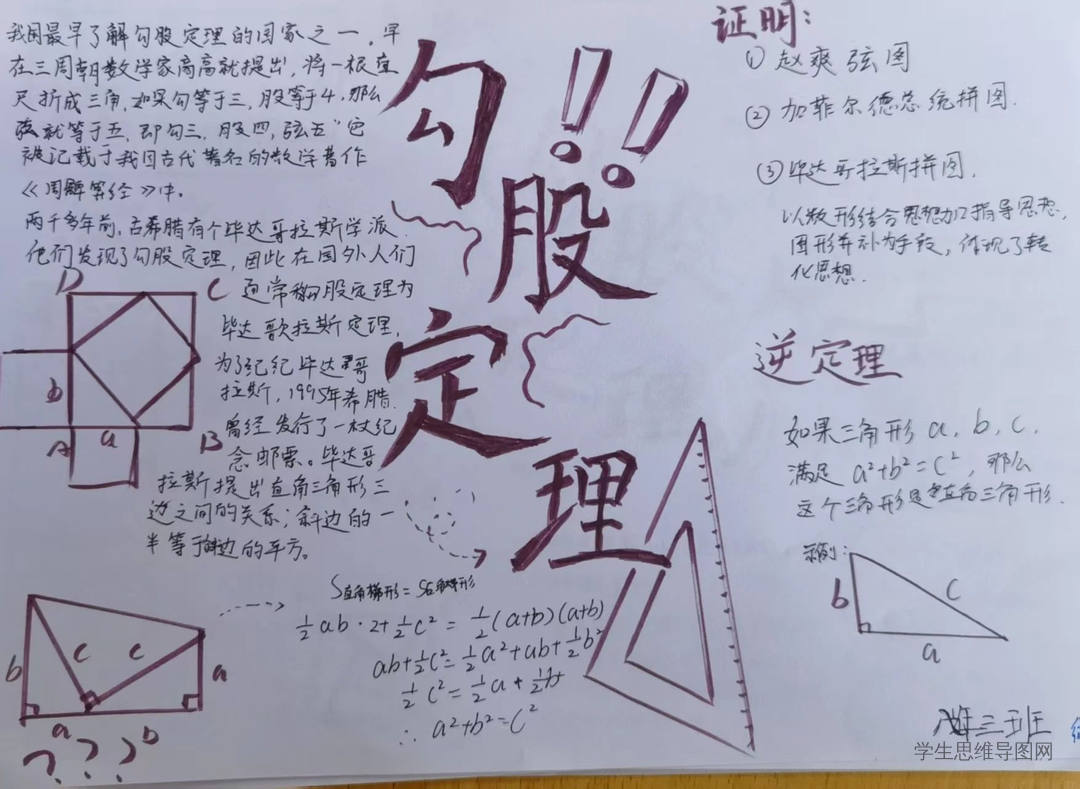 我国最早了解勾股定理的国家之一，早
在三周朝数学家商高就提出，将一根直
尺折成三角，如果勾等于三，股等于4，那么
弦就等于五，即勾三，股四，弦五"它
被记载于我国古代著名的数学著作
《周髀算经》中。
两千多年前，古希腊有个毕达哥拉斯学派，
他们发现了勾股定理，因此在国外人们
通常称勾股定理为
毕达歌拉斯定理，
为了纪纪毕达哥
拉斯，1995年希腊
曾经发行了一枚纪
念邮票。毕达哥
拉斯提出直角三角形三
边之间的关系；斜边的一
半等于斜边的平方。
D
C
b
A
a
B
勾股定理!!
证明：
① 赵爽弦图
② 加菲尔德总统拼图.
③ 毕达哥拉斯拼图.
以数形结合思想为指导思想，
图形弃补为手段，体现了转
化思想.
逆定理
如果三角形 a，b，c，
满足 a²+b²=c²，那么
这个三角形是直角三角形.
示例：
b
c
a
b
c
c
a
a
b
???
S直角梯形=
½ab·2+½c²=½(a+b)(a+b)
ab+½c²=½a²+ab+½b²
½c²=½a+½
∴a²+b²=c²
三班
学生思维导图网